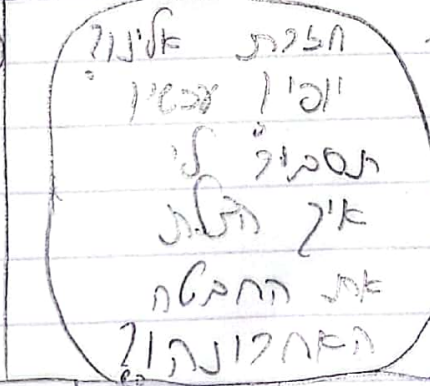 חזרת אלינו?
יופי! עכשיו
תסביר לי
איך הצלת
את החבטה
האחרונה!?